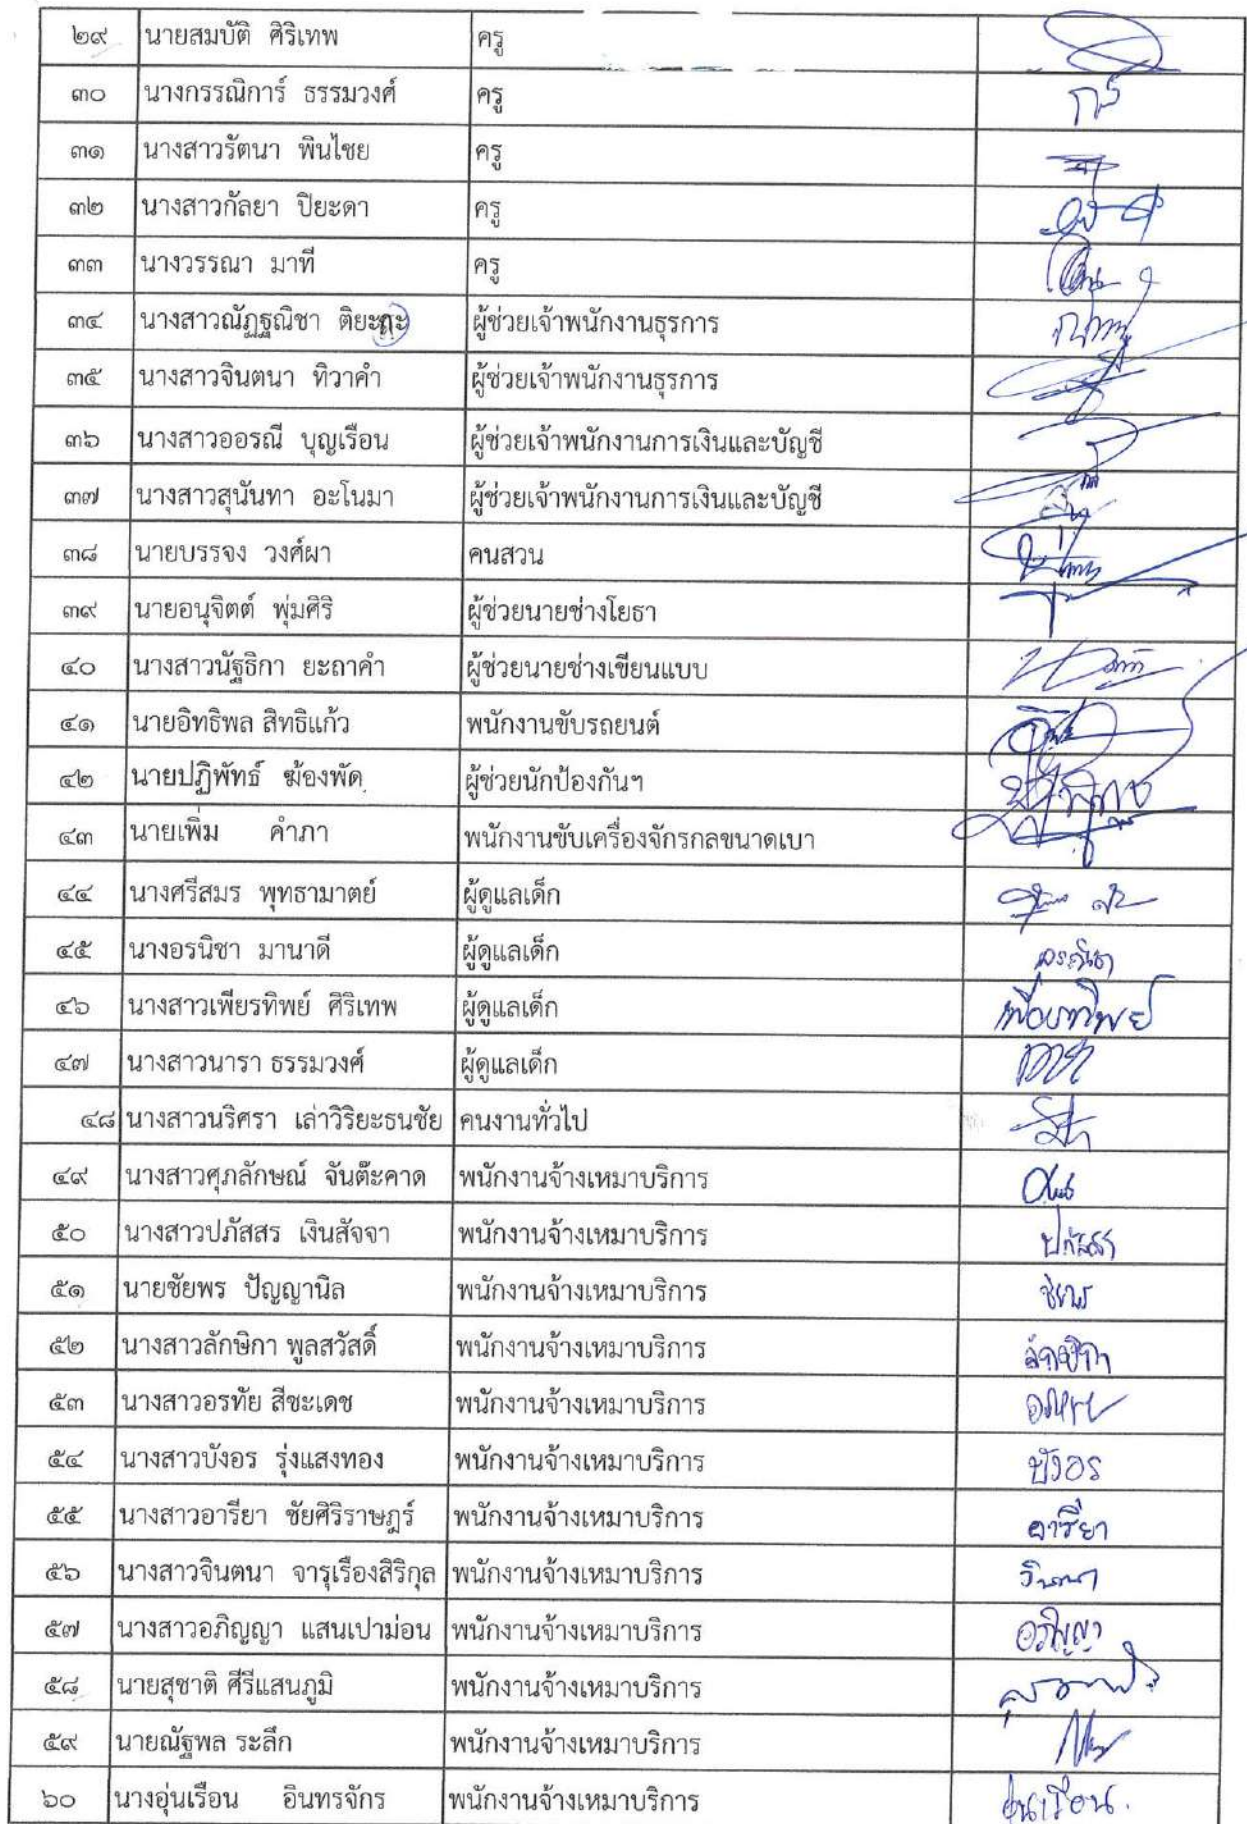 ๒๙ นายสมบัติ ศิริเทพ ครู
๓๐ นางกรรณิการ์ ธรรมวงศ์ ครู
๓๑ นางสาวรัตนา พินไชย ครู
๓๒ นางสาวกัลยา ปิยะดา ครู
๓๓ นางวรรณา มาที ครู
๓๔ นางสาวณัฏฐณิชา ผู้ช่วยเจ้าพนักงานธุรการ
๓๕ นางสาวจินตนา ทิวาคำ ผู้ช่วยเจ้าพนักงานธุรการ
๓๖ นางสาวออรณี บุญเรือน ผู้ช่วยเจ้าพนักงานการเงินและบัญชี
๓๗ นางสาวสุนันทา อะโนมา ผู้ช่วยเจ้าพนักงานการเงินและบัญชี
๓๘ นายบรรจง วงศ์ผา คนสวน
๓๙ นายอนุจิตต์ พุ่มศิริ ผู้ช่วยนายช่างโยธา
๔๐ นางสาวนัฐธิกา ยะถาคำ ผู้ช่วยนายช่างเขียนแบบ
๔๑ นายอิทธิพล สิทธิแก้ว พนักงานขับรถยนต์
๔๒ นายปฏิพัทธ์ ฆ้องพัด ผู้ช่วยนักป้องกันฯ
๔๓ นายเพิ่ม คำภา พนักงานขับเครื่องจักรกลขนาดเบา
๔๔ นางศรีสมร พุทธามาตย์ ผู้ดูแลเด็ก
๔๕ นางอรนิชา มานาดี ผู้ดูแลเด็ก
๔๖ นางสาวเพียรทิพย์ ศิริเทพ ผู้ดูแลเด็ก เพียรทิพย์
๔๗ นางสาวนารา ธรรมวงศ์ ผู้ดูแลเด็ก นารา
๔๘ นางสาวนริศรา เล่าวิริยะธนชัย คนงานทั่วไป
๔๙ นางสาวศุภลักษณ์ จันต๊ะคาด พนักงานจ้างเหมาบริการ
๕๐ นางสาวปภัสสร เงินสัจจา พนักงานจ้างเหมาบริการ ปภัสสร
๕๑ นายชัยพร ปัญญานิล พนักงานจ้างเหมาบริการ ชัยพร
๕๒ นางสาวลักษิกา พูลสวัสดิ์ พนักงานจ้างเหมาบริการ ลักษิกา
๕๓ นางสาวอรทัย สีชะเดช พนักงานจ้างเหมาบริการ
๕๔ นางสาวบังอร รุ่งแสงทอง พนักงานจ้างเหมาบริการ บังอร
๕๕ นางสาวอารียา ชัยศิริราษฎร์ พนักงานจ้างเหมาบริการ อารียา
๕๖ นางสาวจินตนา จารุเรืองสิริกุล พนักงานจ้างเหมาบริการ จินตนา
๕๗ นางสาวอภิญญา แสนเปาม่อน พนักงานจ้างเหมาบริการ อภิญญา
๕๘ นายสุชาติ ศีรีแสนภูมิ พนักงานจ้างเหมาบริการ
๕๙ นายณัฐพล ระลึก พนักงานจ้างเหมาบริการ
๖๐ นางอุ่นเรือน อินทรจักร พนักงานจ้างเหมาบริการ อุ่นเรือน